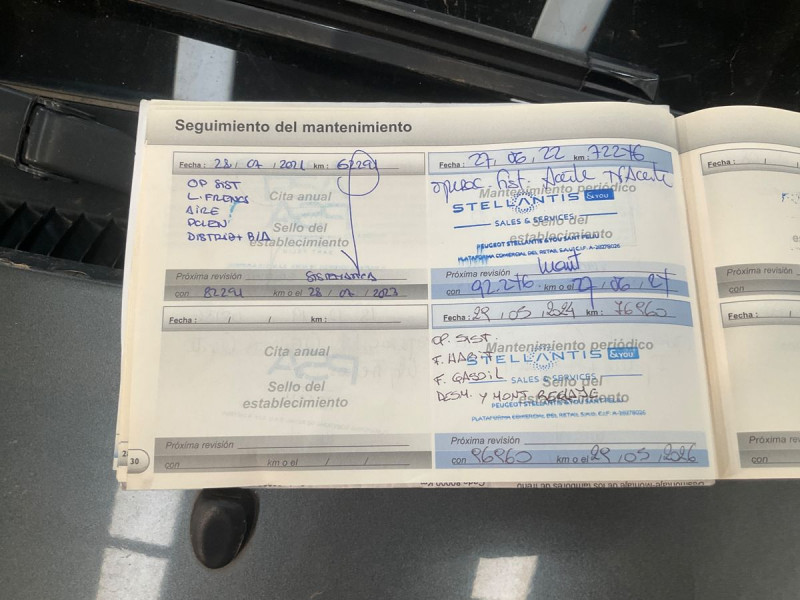 Seguimiento del mantenimiento
Fecha: 28 / 07 / 2021 km: 62291
OP SIST
L. FRENOS
AIRE
POLEN
DISTRI + B/A
Cita anual
Sello del
establecimiento
Próxima revisión SISTEMATICA
con 82291 km o el 28 / 07 / 2023
Fecha: 27, 06, 22 km: 72276
Sist. Aceite
Mantenimiento periódico
STELLANTIS &YOU
SALES & SERVICES
PEUGEOT STELLANTIS &YOU SANT FELIU
PLATAFORMA COMERCIAL DEL RETAIL S.A.U C.I.F. A-28278026
Próxima revisión Mant
con 92.276 km o el 27, 06, 27
Fecha: / / km:
Cita anual
Sello del
establecimiento
Próxima revisión
con km o el / /
Fecha: 29, 05, 2024 km: 76960
OP. SIST.
Mantenimiento periódico
F. HABIT
STELLANTIS &YOU
F. GASOIL
SALES & SERVICES
Sello del
DESM. Y MONT.
establecimiento
PEUGEOT STELLANTIS &YOU SANT FELIU
PLATAFORMA COMERCIAL DEL RETAIL S.A.U C.I.F. A-28278026
Próxima revisión
con 96960 km o el 29, 05, 2026
30
Fecha: / /
Próxima revisión
con
Fecha: / /
Próxima re
con